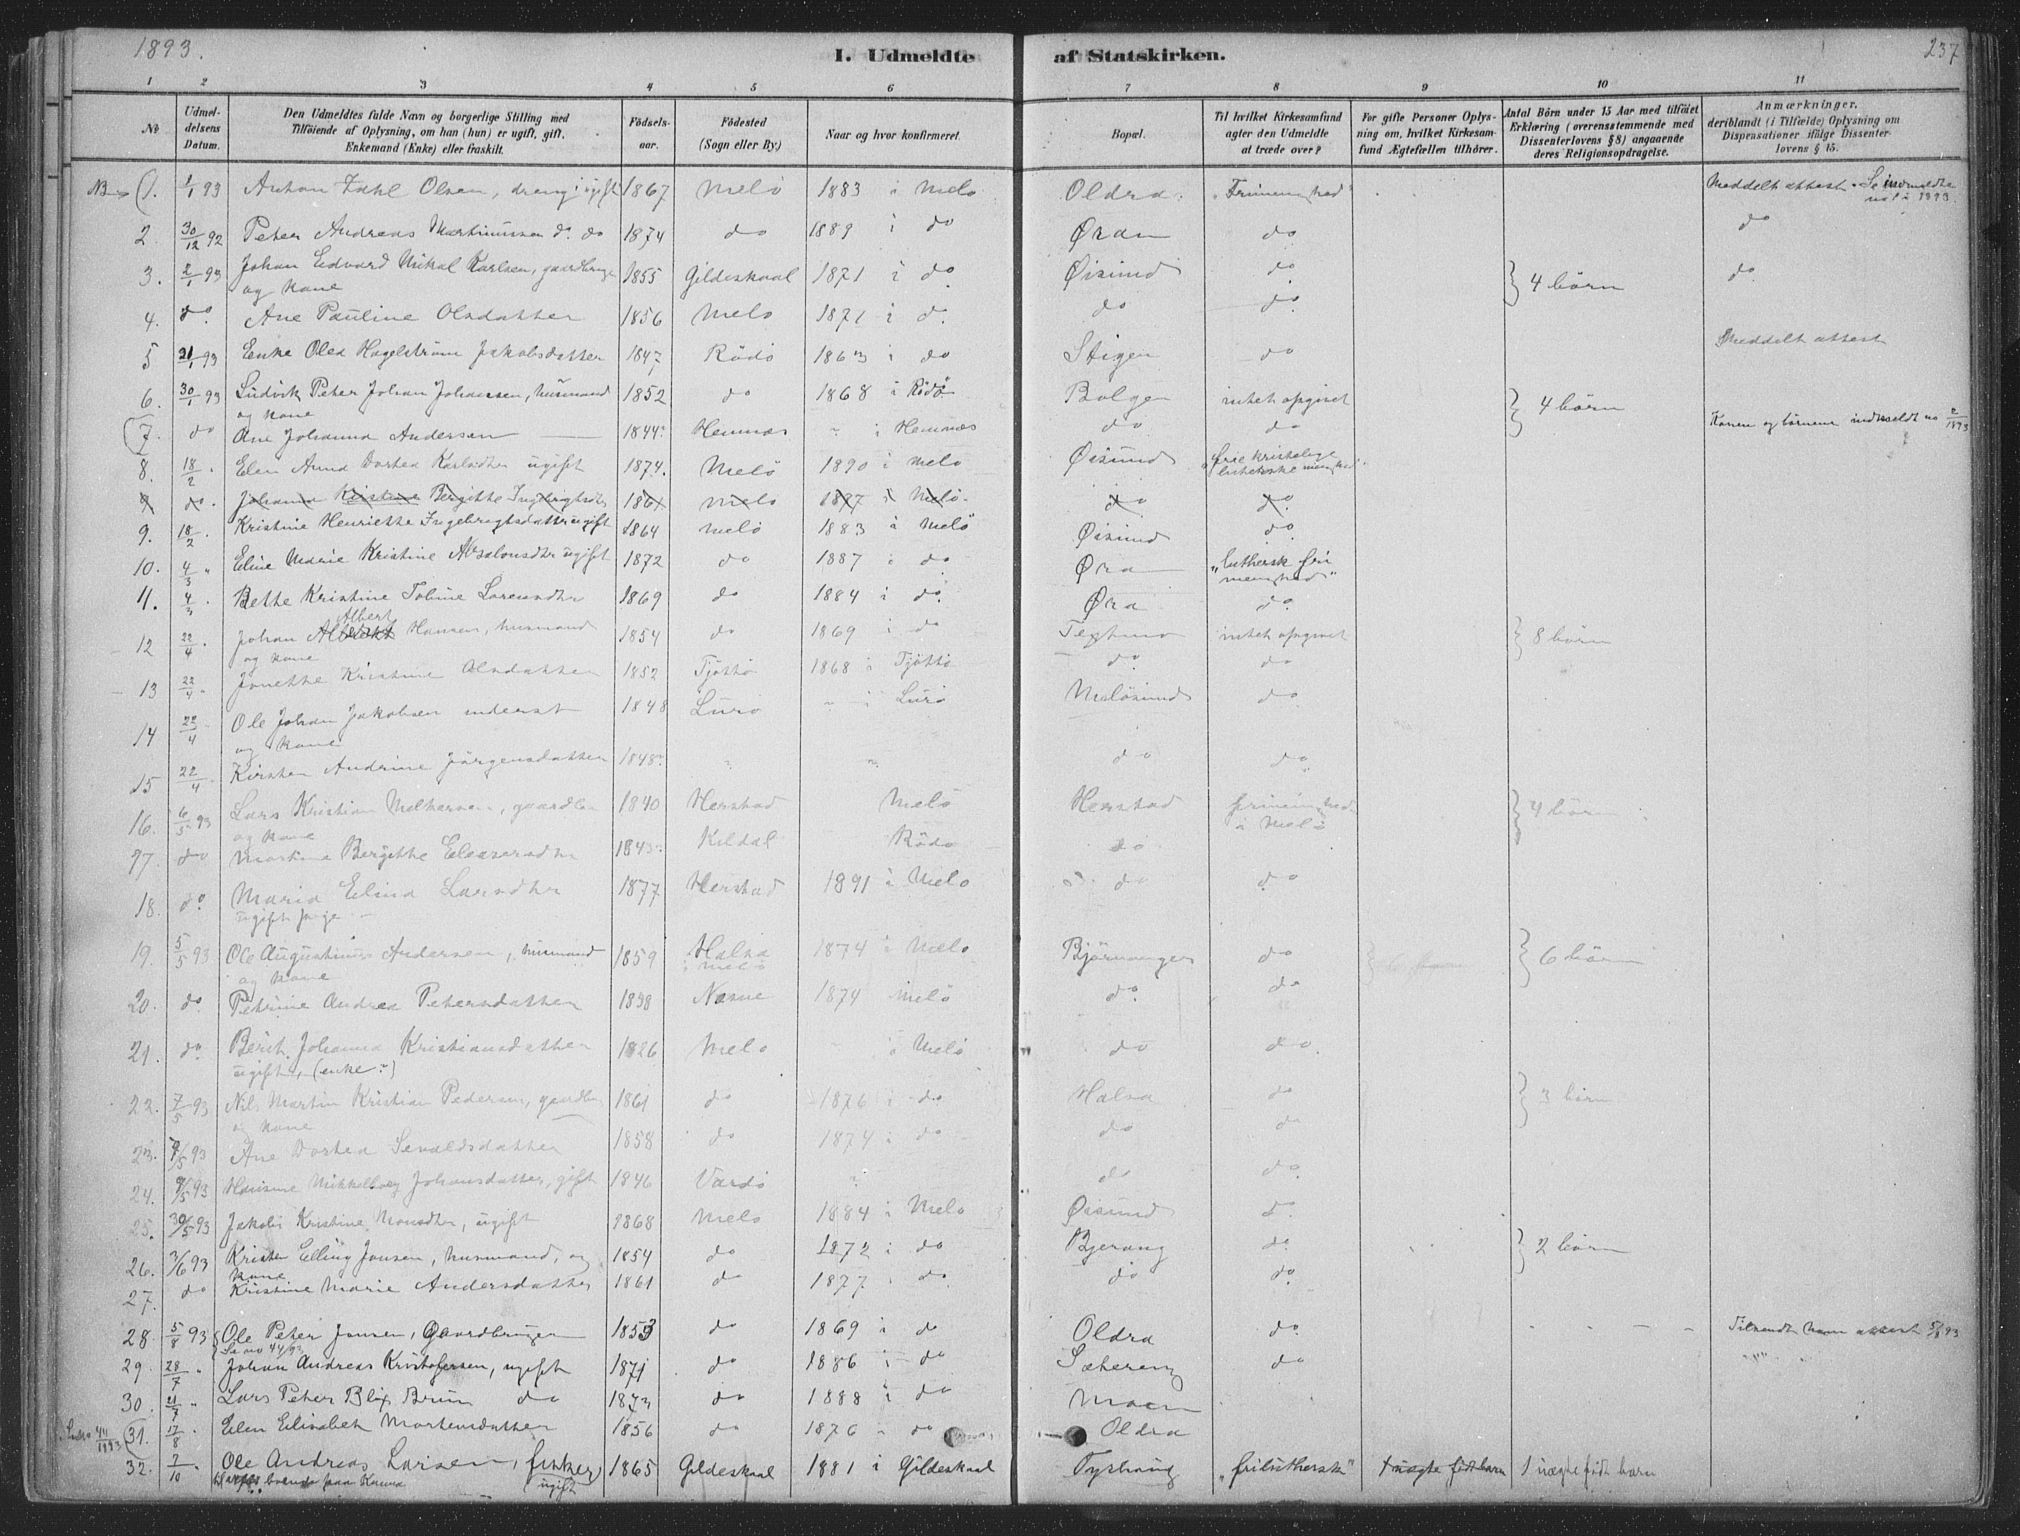 1893.
I. Udmeldte af Statskirken.
237
1 2 3 4 5 6 7 8 9 10 11
No
Udmel-
delsens
Datum.
Den Udmeldtes fulde Navn og borgerlige Stilling med
Tilföiende af Oplysning, om han (hun) er ugift, gift,
Enkemand (Enke) eller fraskilt.
Födsels-
aar.
Födested
(Sogn eller By.)
Naar og hvor konfirmeret.
Bopæl.
Til hvilket Kirkesamfund
agter den Udmeldte
at træde over?
For gifte Personer Oplys-
ning om, hvilket Kirkesam-
fund Ægtefællen tilhörer.
Antal Börn under 15 Aar med tilföiet
Erklæring (overensstemmende med
Dissenterlovens § 8) angaaende
deres Religionsopdragelse.
Anmærkninger,
deriblandt (i Tilfælde) Oplysning om
Dispensationer ifölge Dissenter-
lovens § 15.
1. 1/1 93 Anton Dahl Olsen, dreng, ugift 1867 Melö 1883 i Melö Oldra Frimenighed Meddelt attest. Se indmeldte no 1 i 1893.
2. 30/12 92 Peter Andreas Martinussen do. do 1874 do 1889 i do Øran do do
3. 2/1 93 Johan Edvard Mikal Karlsen, gaardbruger 1855 Gildeskaal 1871 i do. Øisund do } 4 börn do
og kone
4. do Ane Pauline Olsdatter 1856 Melö 1871 i d. do do
5 31/1 93 Enke Olea Hagelström Jakobsdatter 1847 Rödö 1863 i do Stigen do Meddelt attest
6. 30/1 93 Ludvik Peter Johan Johansen, husmand 1852 do 1868 i Rödö Bolgen intet opgivet } 4 börn
og kone
7. do Ane Johanna Andersen 1844 Hemnæs " i Hemnæs do do Konen og börnene indmeldt no 2/1893
8. 18/2 . Elen Anna Dortea Karlsdtr ugift 1874. Melö 1890 i Melö Øisund "frie kristelige
lutherske menighed"
9 do. Johanna Kristine Bergitte Ingebrigtsdtr Melö i Melö. do do
9. 18/2 . Kristine Henriette Ingebrigtsdatter ugift 1864 Melö 1883 i Melö Øisund do
10. 4/3 " Eline Marie Kristine Absalonsdtr ugift 1872 do 1887 i do Øra "luthersk fri
menighed"
11. 4/3 . Bette Kristine Toline Lorensdtr 1869 do 1884 i do. Øra do.
Albert
12 22/4 . Johan Hansen, husmand 1854 do 1869 i do intet opgivet } 8 börn
og kone
13 22/4 " Jonette Kristine Olsdatter 1852 Tjöttö 1868 i Tjöttö do. do
14 22/4 . Ole Johan Jakobsen inderst 1848 Lurö " i Lurö Melösund do
og kone
15 22/4 . Kirsten Andrine Jörgensdatter 1848 " " do do
16. 6/5 93 Lars Kristian Melkersen, gaardbr 1840 Herstad Melö Herstad frimenighed
i Melö } 4 börn
og kone
17. do Bergitte Eleasersdtr 1843 Kildal Rödö do
18. do. Maria Elina Larsdtr 1877 Herstad 1891 i Melö do do
ugift pige
19. 5/5 93 Ole Augustinus Andersen, husmand 1859 Halsa
i Melö 1874 i Melö do } 6 börn
og kone
20. do. Petrine Andrea Petersdatter Nesne 1874 Melö do. do
21. do. Berit Johanna Kristiansdatter 1826 Melö i Melö do do.
ugift, (enke?)
22. 7/5 93 Nils Martin Kristian Pedersen, gaardbr 1861 do 1876 i do Halsa do } 3 börn
og kone
23. 7/5 93 Ane Dortea Sevaldsdatter 1858 do 1874 i do do do
24. 9/5 93 Johansdatter, gift 1846 Vardö " do do.
25. 30/5 93 Jakobi Kristine Monsdtr, ugift 1868 Melö 1884 i Melö Øisund d.
26. 3/6 93 Elling Jonsen, husmand, og 1854 do 1872 i do Bjerang do. } 2 börn
kone
27. do Kristine Marie Andersdatter 1861 do 1877 i do. do do.
28. 5/8 93 Ole Peter Jonsen, Gaardbruger 1853 do 1869 i do Oldra do. Tilsendt ham attest 5/8 93
Se no 44/93
29. 28/7 " Johan Andreas Kristofersen, ugift 1871 do 1886 i do Sætereng do
30. 21/7 " Lars Peter Blix Brun do 1873 do 1888 i do Moen
44/1893 31. 17/8 Elen Elisabet Mortensdatter 1856 do 1876 i do Oldra
32. 7/10 . Ole Andreas Larsen, fisker, 1865 Gildeskaal 1881 i Gildeskaal "frilutherske" 1 uægte födt barn 1 uægte födt barn
boende paa ugift